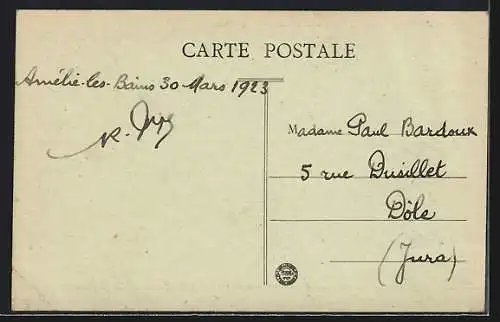 CARTE POSTALE
Amélie-les-Bains 30 Mars 1923
Madame Paul Bardoux
5 rue Dusillet
Dôle
(Jura)